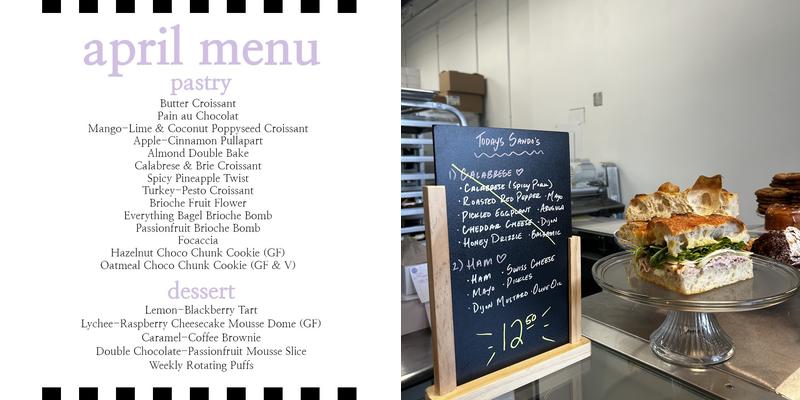 april menu
pastry
Butter Croissant
Pain au Chocolat
Mango-Lime & Coconut Poppyseed Croissant
Apple-Cinnamon Pullapart
Almond Double Bake
Calabrese & Brie Croissant
Spicy Pineapple Twist
Turkey-Pesto Croissant
Brioche Fruit Flower
Everything Bagel Brioche Bomb
Passionfruit Brioche Bomb
Focaccia
Hazelnut Choco Chunk Cookie (GF)
Oatmeal Choco Chunk Cookie (GF & V)
dessert
Lemon-Blackberry Tart
Lychee-Raspberry Cheesecake Mousse Dome (GF)
Caramel-Coffee Brownie
Double Chocolate-Passionfruit Mousse Slice
Weekly Rotating Puffs
TODAYS SANDO'S
1) CALABRESE ♡
• CALABRESE (SPICY PORK)
• ROASTED RED PEPPER • MAYO
• PICKLED EGGPLANT • ARUGULA
• CHEDDAR CHEESE • DIJON
• HONEY DRIZZLE • BALSAMIC
2) HAM ♡
• HAM • SWISS CHEESE
• MAYO • PICKLES
• DIJON MUSTARD • OLIVE OIL
12.50